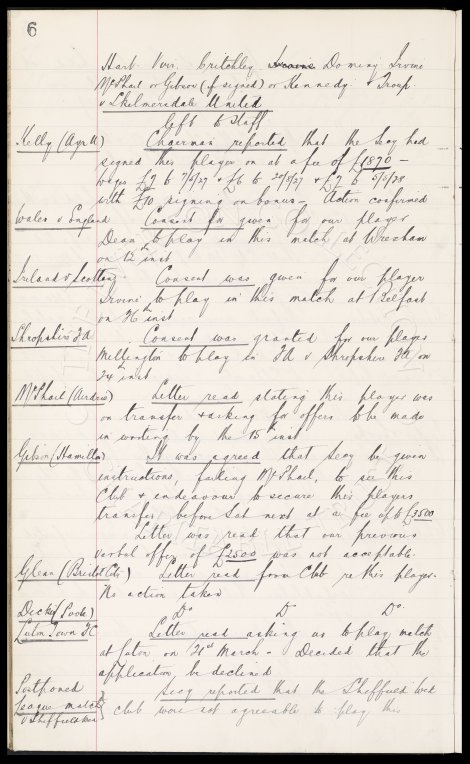 6
Hart Virr. Critchley Irvine Dominy Irvine
McPhail or Gibson (if signed) or Kennedy & Troup
v Skelmersdale United
Left to Staff
Kelly (Ayr U) Chairman reported that the Secy had
signed this player on at a fee of £1870 -
wages £7 to 7/5/27 & £6 to 20/8/27 & £7 to 5/5/28
with £10 signing on bonus - Action confirmed
Wales v England Consent for given for our player
Dean to play in this match at Wrexham
on 12th inst
Ireland v Scotland Consent was given for our player
Irvine to play in this match at Belfast
on 26th inst
Shropshire FA Consent was granted for our player
Millington to play in FA v Shropshire FA on
24th inst
McPhail (Airdrie) Letter read stating this player was
on transfer & asking for offers to be made
in writing by the 15th inst
Gibson (Hamilton) It was agreed that Secy be given
instructions, failing McPhail, to see this
Club & endeavour to secure this players
transfer before Sat next at a fee up to £3500
Letter was read that our previous
verbal offer of £2500 was not acceptable
Glean (Bristol City) Letter read from Club re this player.
No action taken
Deckey (Poole) Do Do Do.
Luton Town FC Letter read asking us to play match
at Luton on 26th March - Decided that the
application be declined
Postponed Secy reported that the Sheffield Wed
League match club were not agreeable to play this
v Sheffield Wed